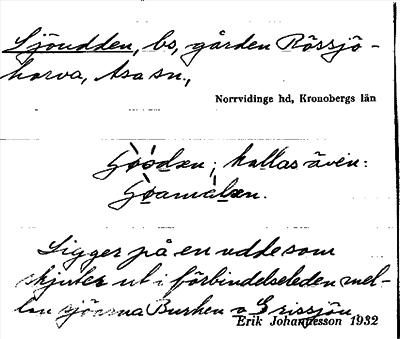 Sjöudden, bs, gården Rössjö-
horva, Asa sn.,
Norrvidinge hd, Kronobergs län
kallas även:
Ligger på en udde som
skjuter ut i förbindelseleden mel-
lan sjöarna Burken o Grissjön.
Erik Johannesson 1932